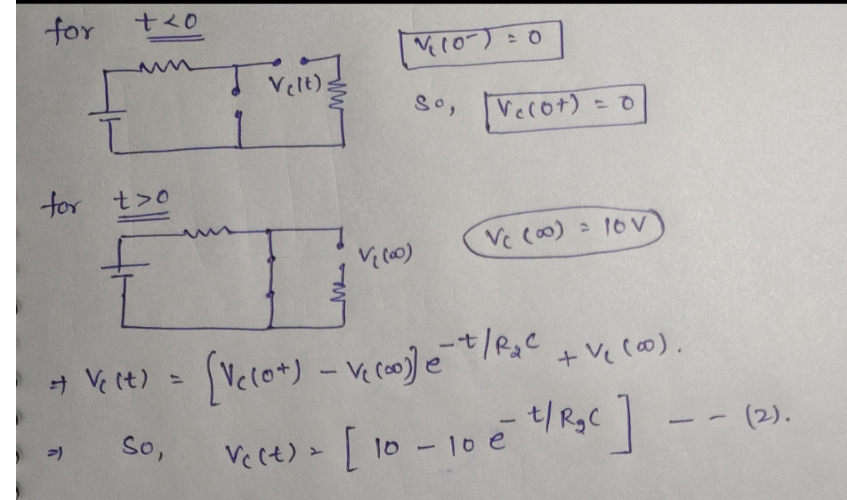 for t<0
Vc(0-) = 0
Vc(t)
so, Vc(0+) = 0
for t>0
Vc(∞)
Vc (∞) = 10V
⇒ Vc(t) = [Vc(0+) - Vc(∞)] e^-t/R2C + Vc(∞).
⇒ So, Vc(t) = [10 - 10 e^-t/R2C] -- (2).